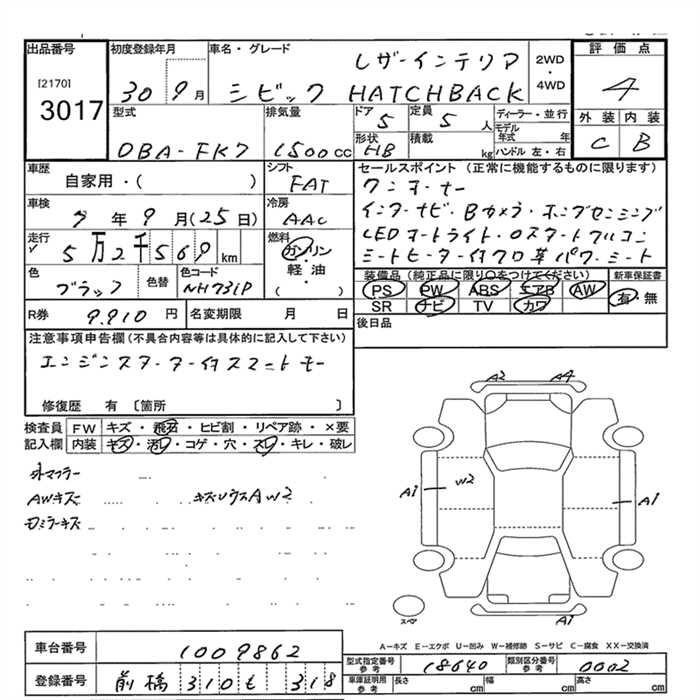 出品番号
[2170]
3017
初度登録年月
30 9月
車名・グレード
レザーインテリア
シビック HATCHBACK
2WD
・
4WD
評価点
4
外装 内装
C B
型式
DBA-FK7
排気量
1500cc
ドア
5
定員
5人
形状
HB
積載
kg
ディーラー・並行
モデル年式 年
ハンドル 左・右
車歴
自家用・( )
シフト
FAT
車検
7年9月(25日)
冷房
AAC
走行
5万2千569km
燃料
ガソリン
・軽油・
( )
色
ブラック
色替
色コード
NH731P
セールスポイント(正常に機能するものに限ります)
ワンオーナー
インターナビ・Bカメラ・ホンダセンシング
LEDオートライト・Oスタートフルコン
シートヒーター付クロ革パワーシート
装備品(純正品に限り〇をつけてください)
PS PW ABS エアB AW
SR ナビ TV カワ
新車保証書
有・無
R券 9,910円
名変期限 月 日
後日品
注意事項申告欄(不具合内容等は具体的に記入して下さい)
エンジンスターター付スマートキー
修復歴 有 〔箇所 〕
検査員 FW キズ・飛石・ヒビ割・リペア跡・×要
記入欄 内装 キズ・汚れ・コゲ・穴・スレ・キレ・破レ
外マフラー
AWキズ キズソウスAW2
Dミラーキズ
A2 A4
A1 W2 A1
スペア A1
A-キズ E-エクボ U-凹み W-補修跡 S-サビ C-腐食 XX-交換済
車台番号 1009862
登録番号 前橋 310 も 318
型式指定番号
参考
18640
類別区分番号
参考
0002
車庫証明用
参考
長さ cm 幅 cm 高さ cm